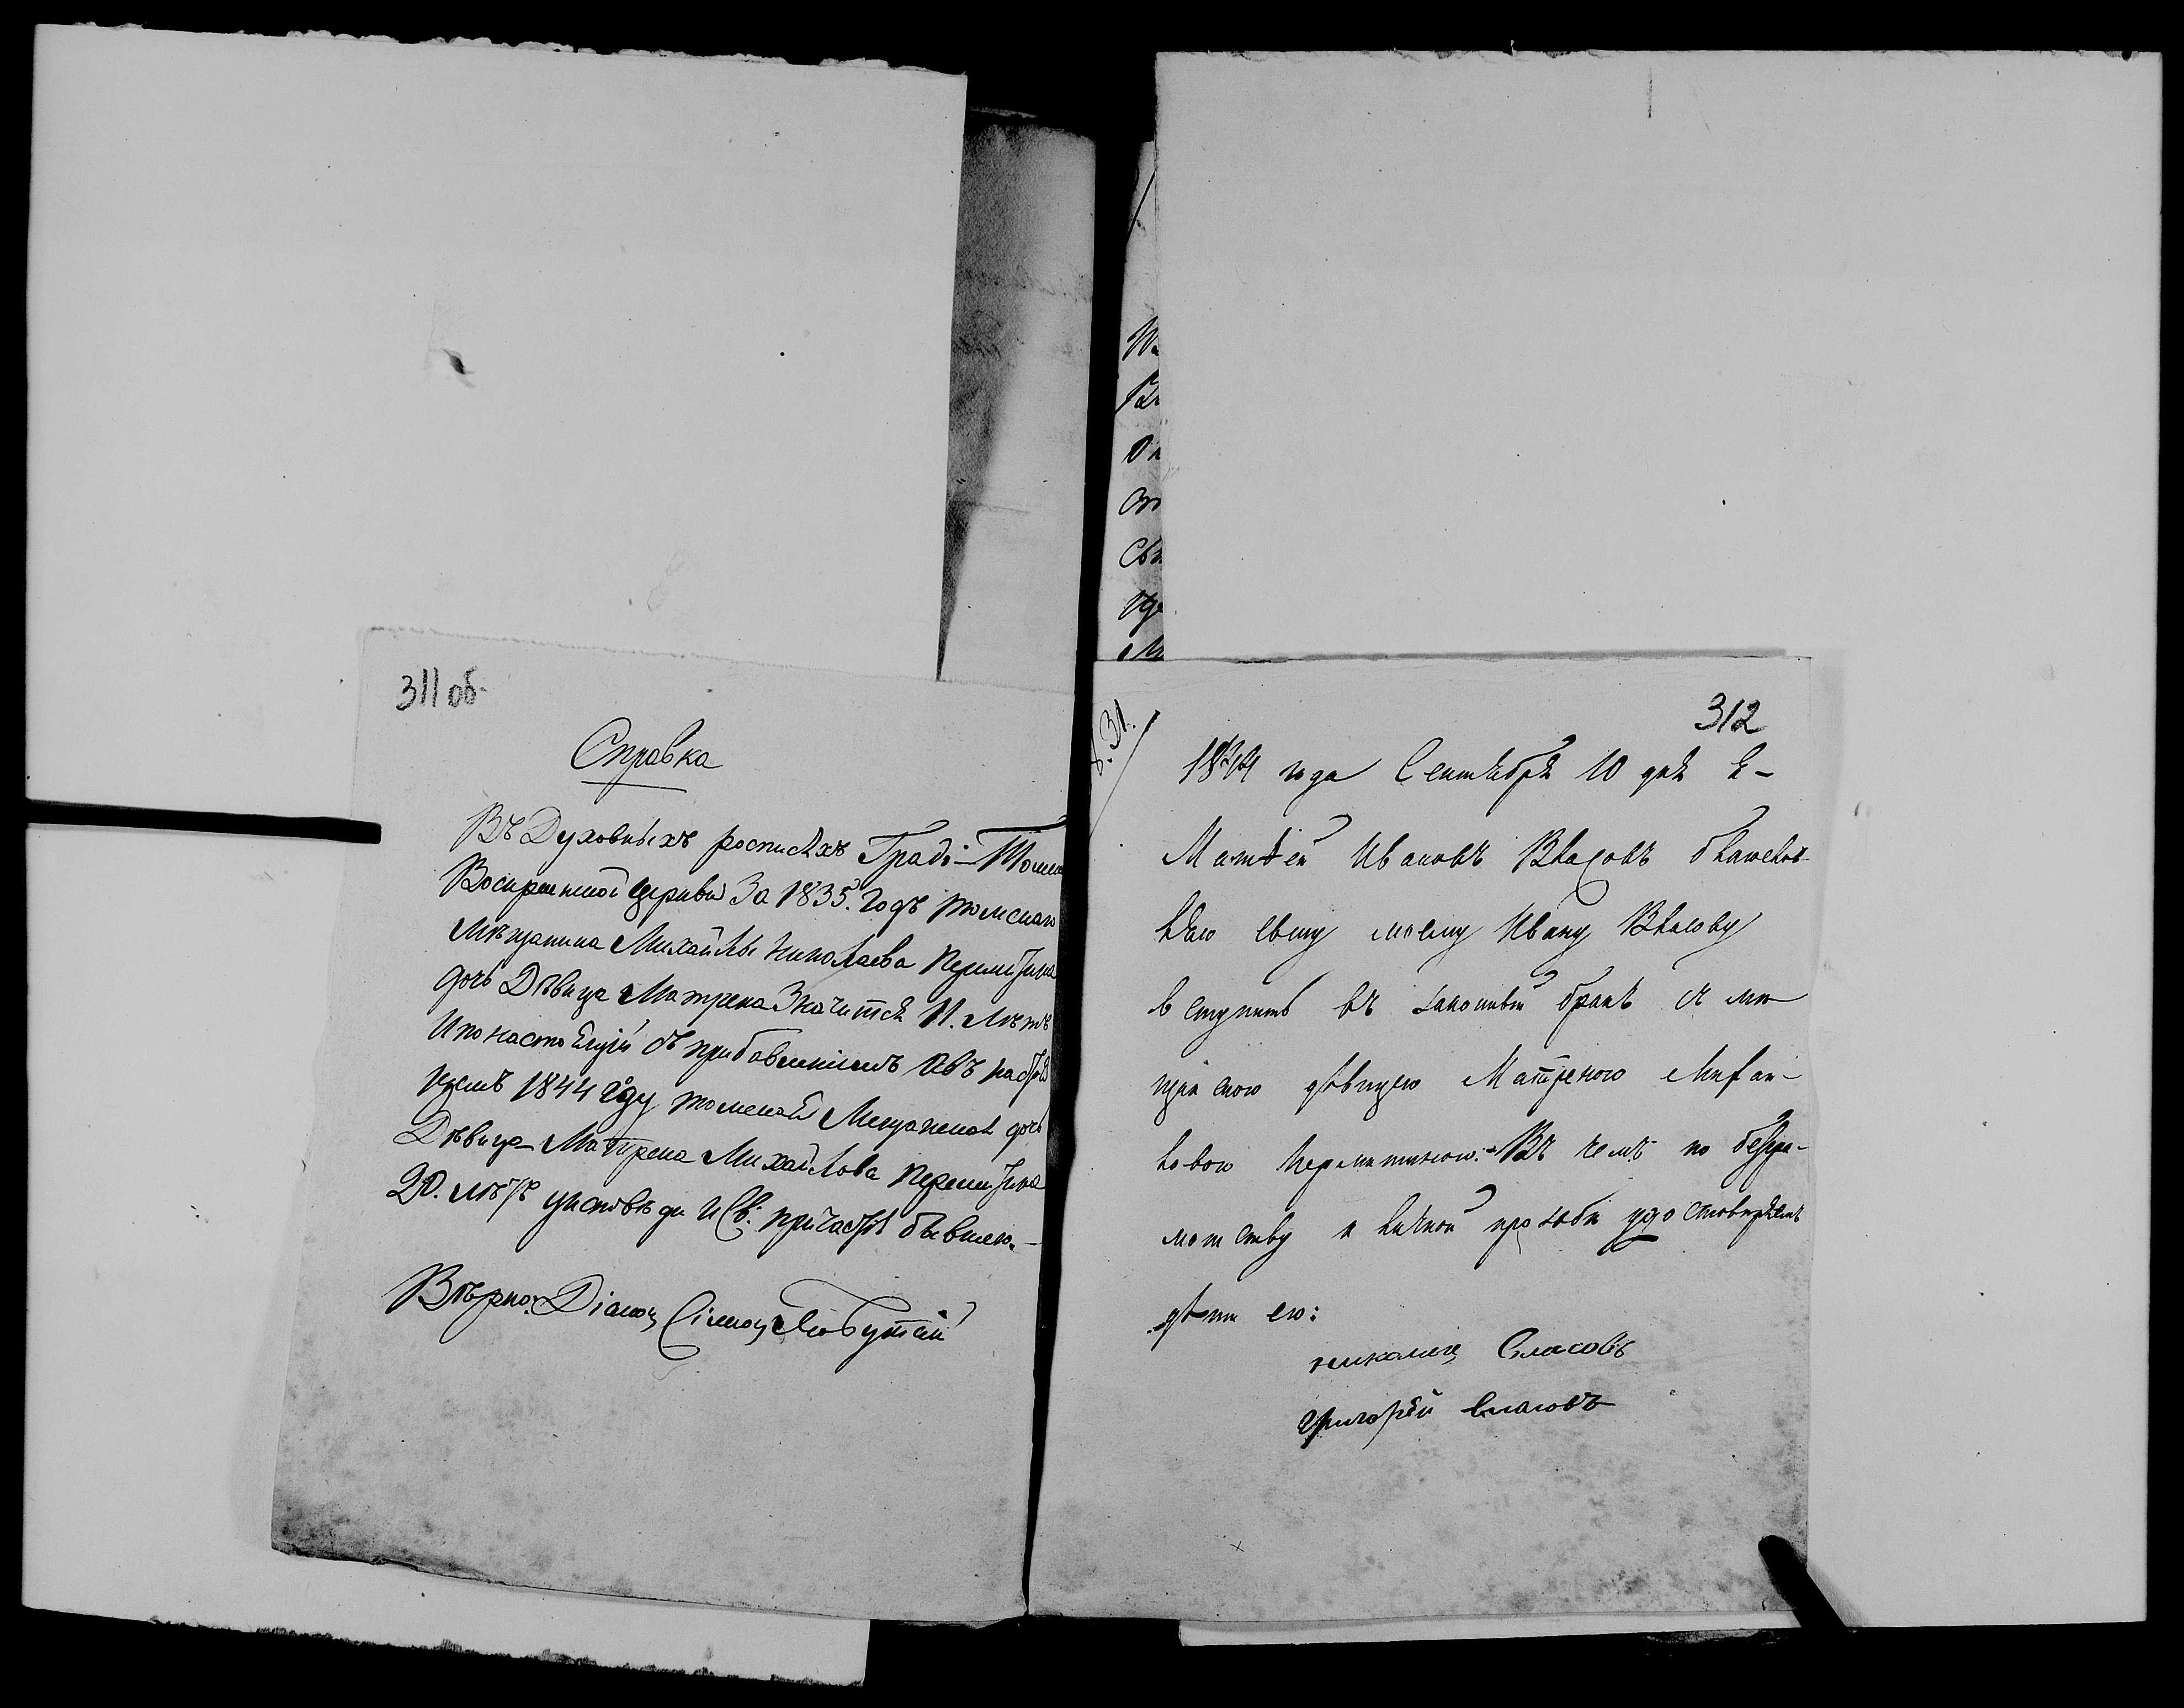 311 об.
Справка
Въ Духовныхъ росписяхъ Градо-Томск
Воскресенской Церкви За 1835. Годъ томскаго
Мѣщанина Михайлы Николаева
дочь Дѣвица Матрена Значится 11. Лѣтъ
А по настоящій съ прибавленіемъ
1844 году томской Мещанской дочь
Дѣвица Матрена Михайлова
20. лѣтъ у исповѣди и Св: причастія бывшею.
Вѣрно: Діакон
31.
312
1844 года Сентября 10 дня я
Матвей Ивановъ Власовъ
даю сыну моему Ивану Власову
вступить въ законный бракъ съ ме
щанскою девицею Матреною Михаи-
ловою Перемитиною. Въ чемъ по безгра-
мотству и личной прозьби удостоверяемъ
дети ево:
николаи Власовъ
Григорей Власовъ